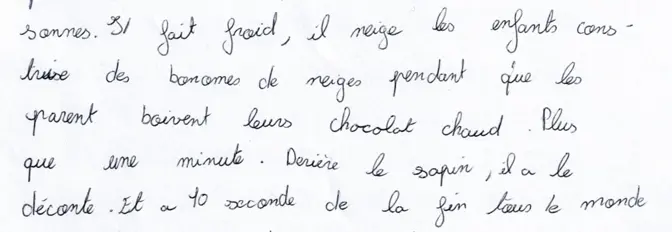 sonnes. Il fait froid, il neige les enfants cons-
truise des bonomes de neiges pendant que les
parent boivent leurs chocolat chaud. Plus
que une minute. Derière le sapin, il a le
déconte. Et a 10 seconde de la fin tous le monde